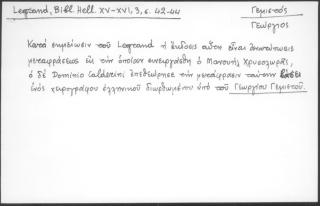 Legrand, Bibl. Hell. XV-XVI, 3, σ. 42-44
Γεμιστός
Γεώργιος
Κατά σημείωσιν τοῦ Legrand ἡ ἔκδοσις αὕτη εἶναι ἀνατύπωσις
μεταφράσεως εἰς τὴν ὁποίαν συνειργάσθη ὁ Μανουὴλ Χρυσολωρᾶς,
ὁ δὲ Dominio Calderini ἐπεθεώρησε τὴν μετάφρασιν ταύτην βάσει
ἑνὸς χειρογράφου ἑλληνικοῦ διωρθωμένου ὑπὸ τοῦ Γεωργίου Γεμιστοῦ.